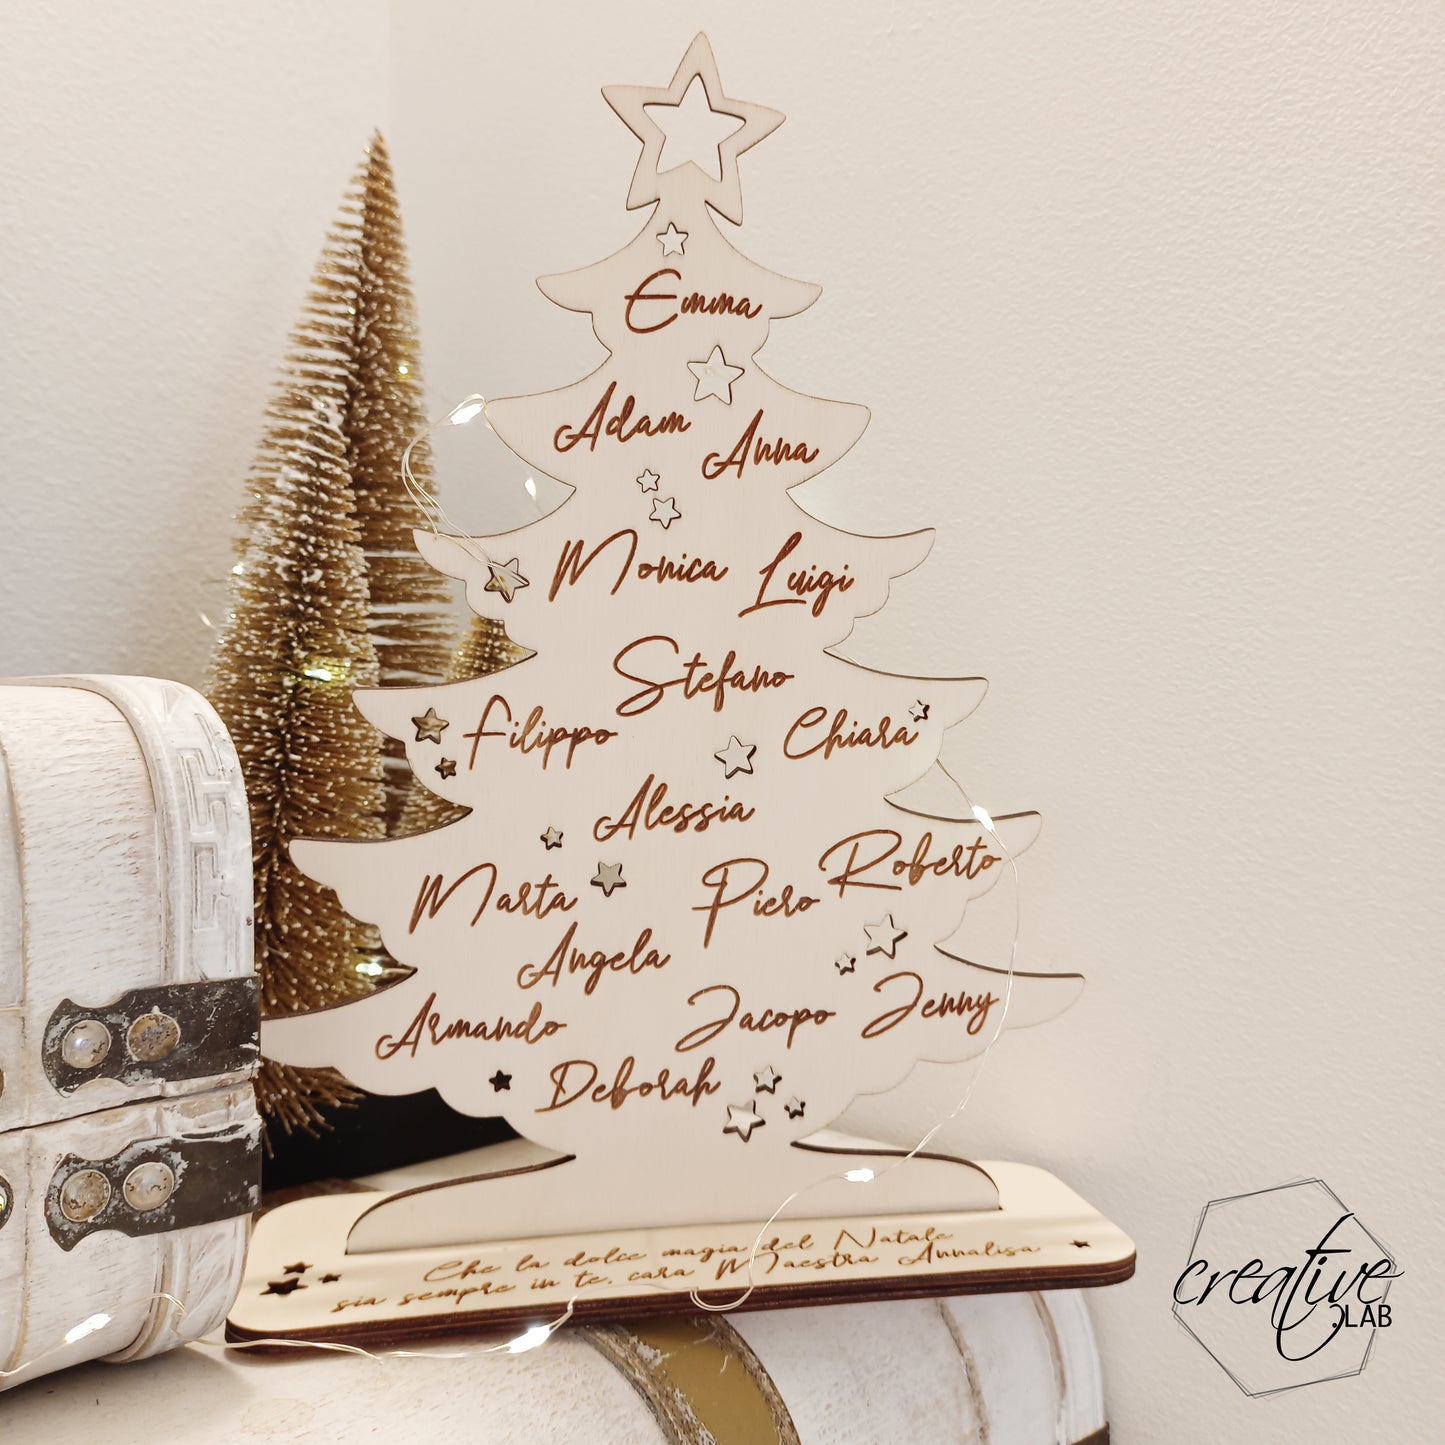 Emma
Adam
Anna
Monica
Luigi
Stefano
Filippo
Chiara
Alessia
Roberto
Marta
Piero
Angela
Armando
Jacopo
Jenny
Deborah
Che la dolce magia del Natale
sia sempre in te, cara Maestra Annalisa
creative
.LAB